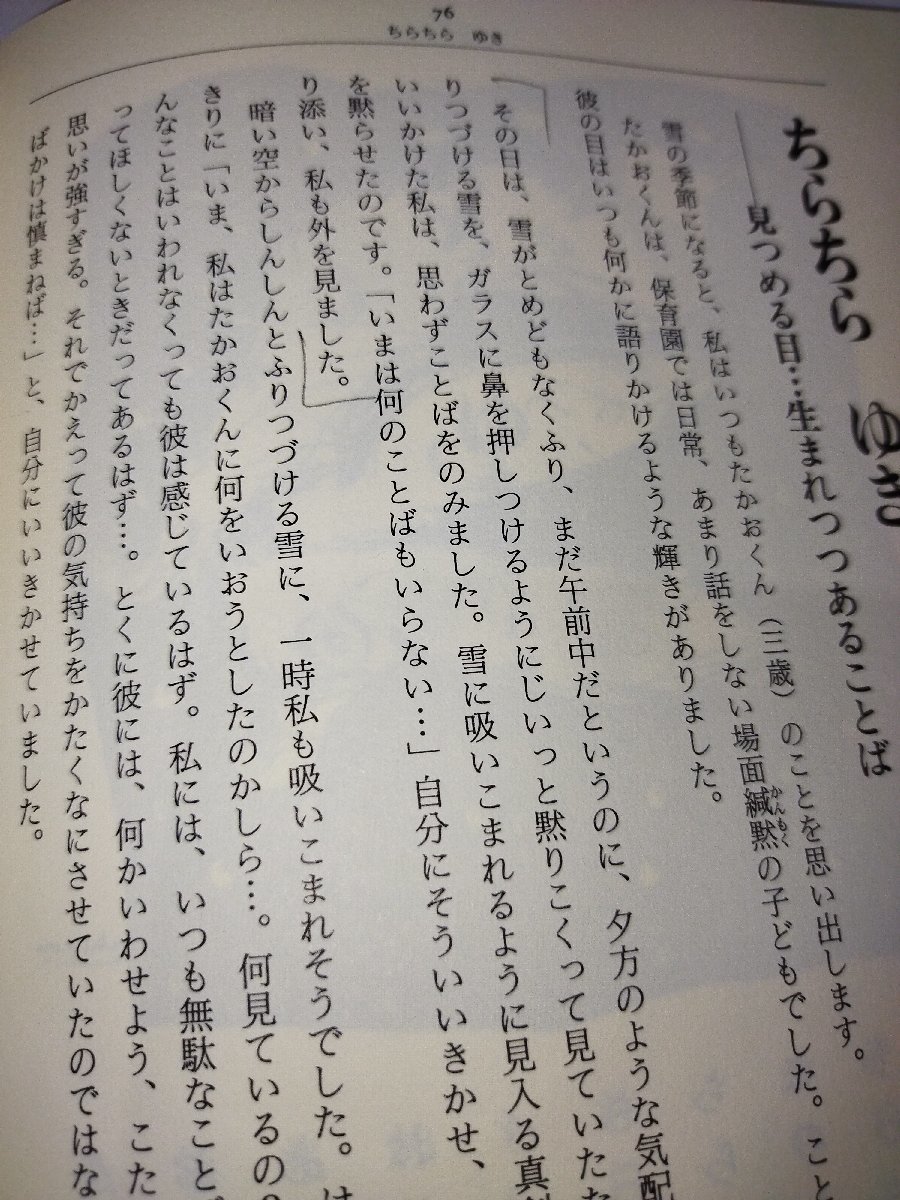 76
ちらちら ゆき
ちらちら ゆき
見つめる目…生まれつつあることば
雪の季節になると、私はいつもたかおくん（三歳）のことを思い出します。
たかおくんは、保育園では日常、あまり話をしない場面緘黙の子どもでした。こと
かんもく
彼の目はいつも何かに語りかけるような輝きがありました。
その日は、雪がとめどもなくふり、まだ午前中だというのに、夕方のような気配
りつづける雪を、ガラスに鼻を押しつけるようにじいっと黙りこくって見ていたた
いいかけた私は、思わずことばをのみました。雪に吸いこまれるように見入る真
を黙らせたのです。「いまは何のことばもいらない…」自分にそういいきかせ、
り添い、私も外を見ました。
暗い空からしんしんとふりつづける雪に、一時私も吸いこまれそうでした。は
きりに「いま、私はたかおくんに何をいおうとしたのかしら…。何見ているの？
んなことはいわれなくっても彼は感じているはず。私には、いつも無駄なこと
ってほしくないときだってあるはず…。とくに彼には、何かいわせよう、こた
思いが強すぎる。それでかえって彼の気持ちをかたくなにさせていたのではな
ばかけは慎まねば…」と、自分にいいきかせていました。